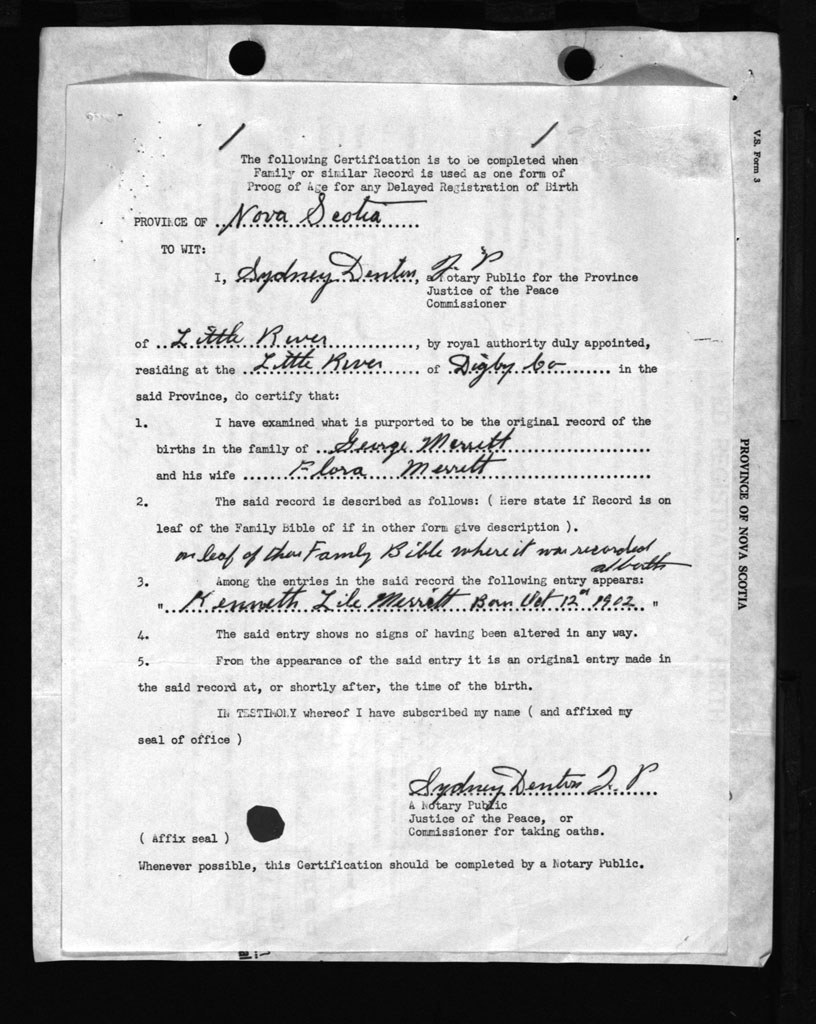 V.S. Form 3
The following Certification is to be completed when
Family or similar Record is used as one form of
Proog of Age for any Delayed Registration of Birth
PROVINCE OF Nova Scotia
TO WIT:
I, Sydney Denton, J. P
a Notary Public for the Province
Justice of the Peace
Commissioner
of Little River, by royal authority duly appointed,
residing at the Little River of Digby Co in the
said Province, do certify that:
1. I have examined what is purported to be the original record of the
births in the family of George Merritt
and his wife Flora Merritt
2. The said record is described as follows: ( Here state if Record is on
leaf of the Family Bible of if in other form give description ).
on leaf of Family Bible where it was recorded
at birth
3. Among the entries in the said record the following entry appears:
" Kenneth Merritt Born Oct 12th 1902 "
4. The said entry shows no signs of having been altered in any way.
5. From the appearance of the said entry it is an original entry made in
the said record at, or shortly after, the time of the birth.
IN TESTIMONY whereof I have subscribed my name ( and affixed my
seal of office )
Sydney Denton J. P
A Notary Public
Justice of the Peace, or
Commissioner for taking oaths.
( Affix seal )
Whenever possible, this Certification should be completed by a Notary Public.
PROVINCE OF NOVA SCOTIA